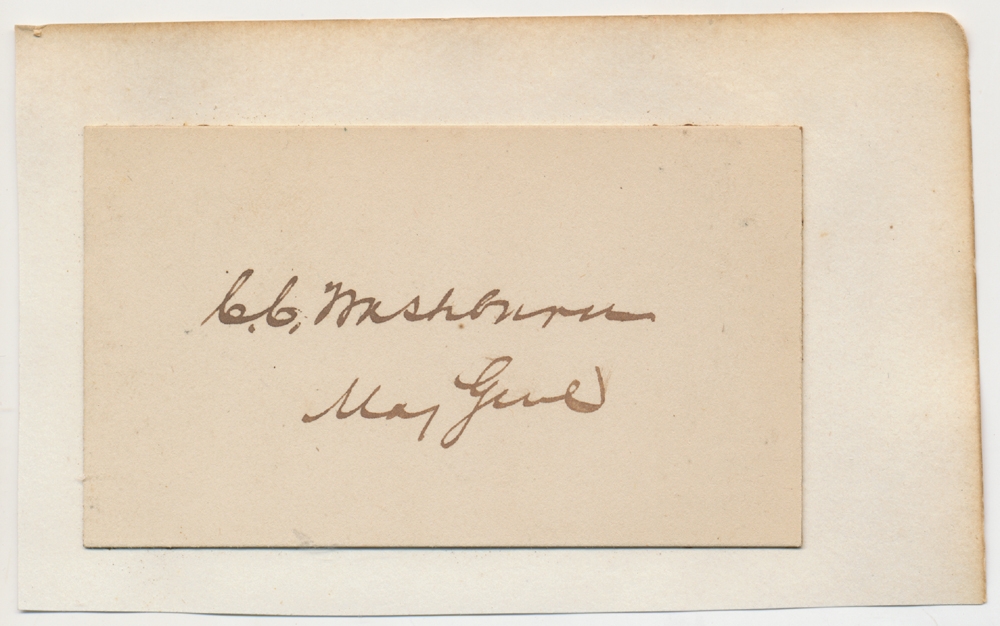 C.C. Washburn
Maj Genl